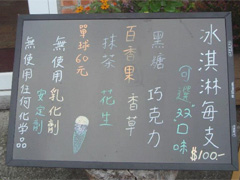 冰淇淋每支
$100-
可選双口味
黑糖 巧克力
百香果 香草
抹茶 花生
單球60元
無使用乳化劑
安定劑
無使用任何化學品